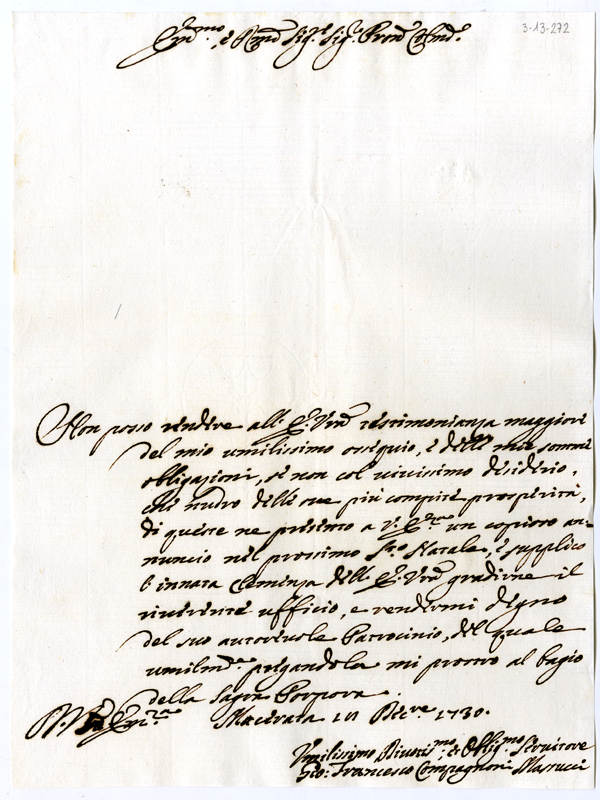 3-13-272
Em.mo, e Rmo Sig.r Sig.r Pron Colmo.
Non posso rendere all' E. Vra testimonianza maggiore
del mio umilissimo ossequio, e delle mie somme
obligazioni, se non col vivissimo desiderio,
che nudro delle sue più compite prosperità,
di queste ne presento a V. E.za un copioso an-
nuncio nel prossimo S.to Natale, e supplico
l'innata Clemenza dell' E. Vra gradirne il
riverente ufficio, e rendermi degno
del suo autorevole Patrocinio, del quale
umilm.te pregandola mi prostro al bagio
della Sagra Porpora.
Macerata Xbre 1730.
Umilissimo Divotis.mo, et Obbg.mo Servitore
Gio: Francesco Compagnoni Marucci